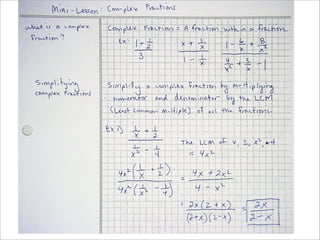 Mini-Lesson: Complex Fractions
what is a complex fraction?
Complex Fraction = A fraction with in a fraction.
Ex: (1 + 1/2)/3 (x + 1/x)/(1 - 1/x) (1 - 6/x + 8/x²)/(4/x² + 3/x - 1)
Simplifying complex fractions
Simplify a complex fraction by multiplying
numerator and denominator by the LCM
(Least common multiple) of all the fractions.
Ex:1) (1/x + 1/2)/(1/x² - 1/4)
The LCM of x, 2, x², + 4
is 4x²
4x²(1/x + 1/2)/4x²(1/x² - 1/4) = (4x + 2x²)/(4 - x²)
= 2x(2+x)/(2+x)(2-x) = 2x/(2-x)